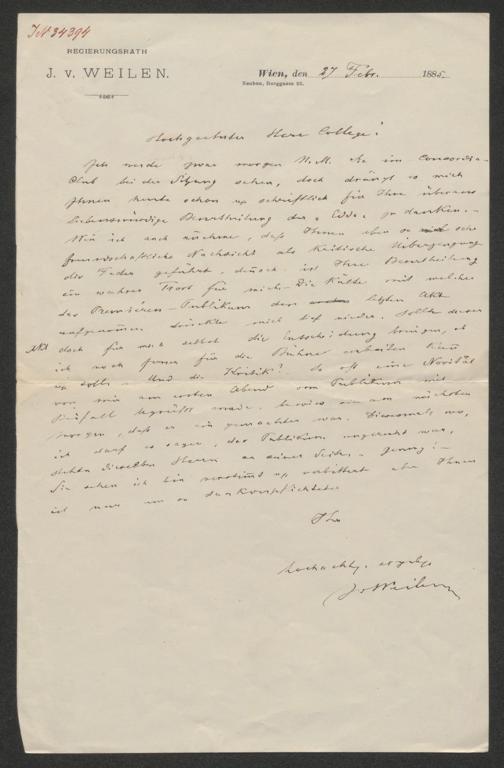 IN 34394
REGIERUNGSRATH
J. v. WEILEN.
Wien, den 27 Febr. 1885.
Neubau, Burggasse 22.
Hochgeehrter Herr College!
Ich werde zwar morgen N. M. Sie im Concordia-
Club bei der Sitzung sehen, doch drängt es mich
Ihnen heute schon schriftlich für Ihre überaus
liebenswürdige Beurtheilung der "Edda" zu danken. -
Wenn ich auch annehme, daß Ihnen eben so sehr
freundschaftliche Nachsicht als kritische Ueberzeugung
die Feder geführt, dennoch ist Ihre Beurtheilung
ein wahrer Trost für mich. Die Kälte mit welcher
das Premièren-Publikum den letzten Akt
aufgenommen drückte mich tief nieder. Sollte dieser
Akt doch für mich selbst die Entscheidung bringen, ob
ich noch ferner für die Bühne arbeiten kann
u. soll. - Und die Kritik! So oft eine Novität
von mir am ersten Abend vom Publikum mit
Beifall begrüßt wurde, bewies man am nächsten
Morgen, daß er ein gemachter war. Diesmal, wo,
ich darf es sagen, das Publikum ungerecht war,
stehen dieselben Herren an seiner Seite. - Genug! -
Sie sehen ich bin verstimmt u. verbittert aber Ihnen
ist nur um so dankverpflichteter
Ihr
hochachtg. ergebn.
J v Weilen